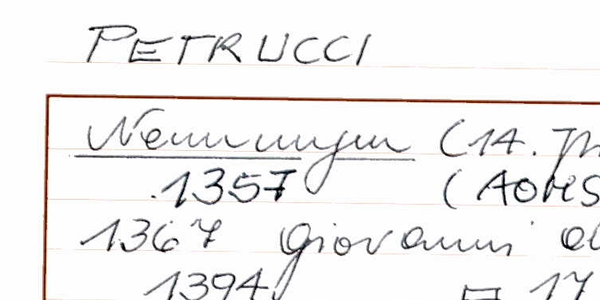 PETRUCCI
Nennungen (14. Jh
1357 (AOMS
1367 Giovanni
1394 17